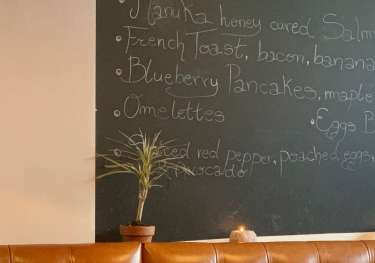 Manuka honey cured Salm
French Toast, bacon, banana
Blueberry Pancakes, maple
Omelettes
Eggs B
red pepper, poached eggs,
Avocado